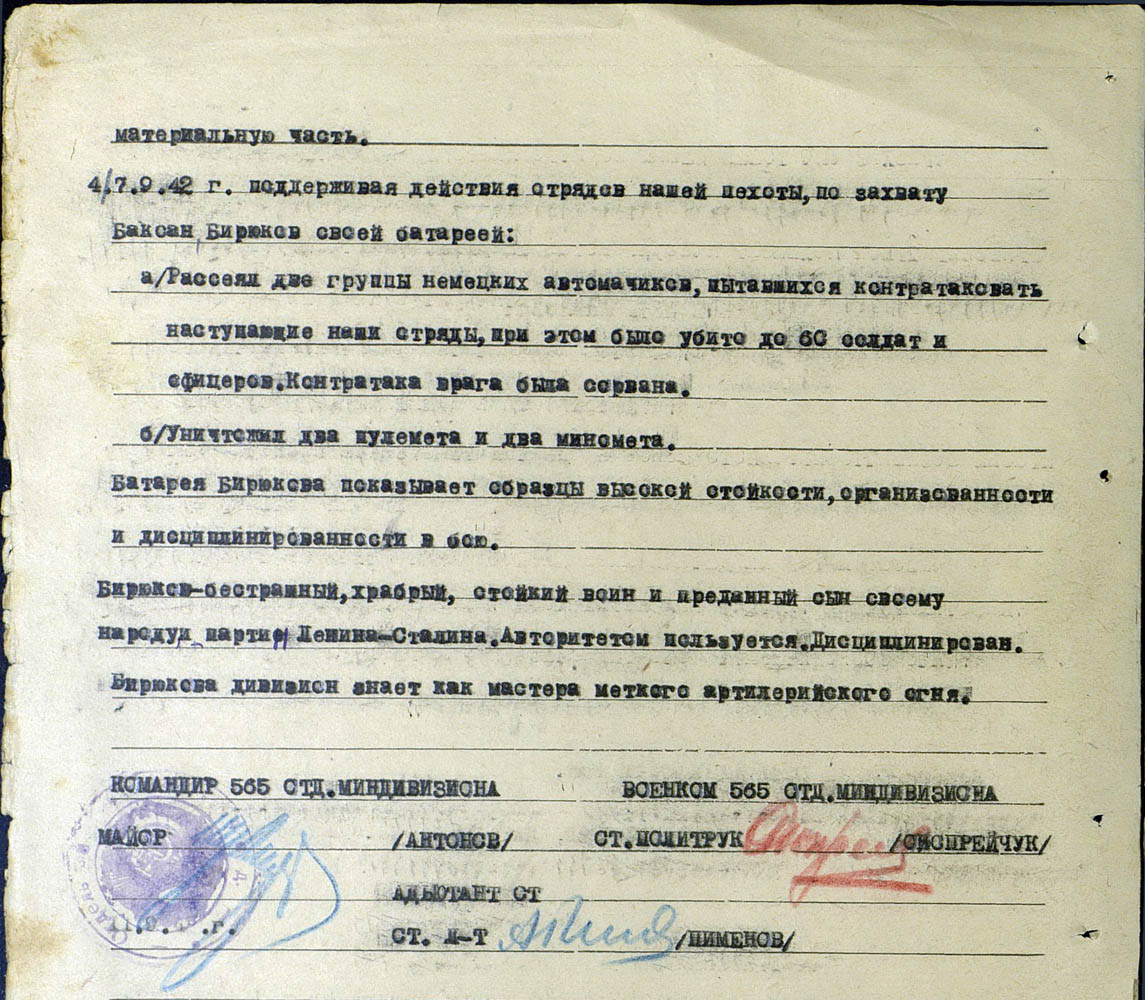 материальную часть.
4/7.9.42 г. поддерживая действия отрядов нашей пехоты,по захвату
Баксан,Бирюков своей батареей:
а/Рассеял две группы немецких автомачиков,пытавшихся контратаковать
наступающие наши отряды,при этом было убито до 60 солдат и
офицеров.Контратака врага была сорвана.
б/Уничтожил два пулемета и два миномета.
Батарея Бирюкова показывает образцы высокой стойкости,организованности
и дисциплинированности в бою.
Бирюков-бестрашный,храбрый, стойкий воин и преданный сын своему
народу,и партии Ленина-Сталина.Авторитетом пользуется.Дисциплинирован.
Бирюкова дивизион знает как мастера меткого артилерийского огня.
КОМАНДИР 565 ОТД.МИНДИВИЗИОНА ВОЕНКОМ 565 ОТД.МИНДИВИЗИОНА
МАЙОР /АНТОНОВ/ СТ.ПОЛИТРУК /СИОПРЕЙЧУК/
АДЬЮТАНТ СТ
СТ. Л-Т /ПИМЕНОВ/